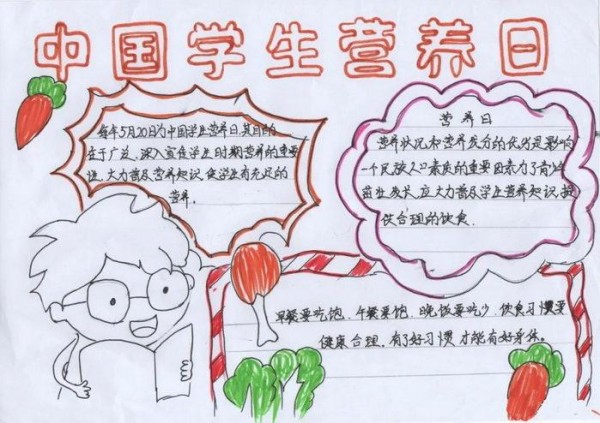 中国学生营养日
每年5月20日为中国学生营养日,其目的
在于广泛、深入宣传学生时期营养的重要
性,大力普及营养知识,使学生有充足的
营养。
营养日
营养状况和营养成分的优劣是影响
一个民族人口素质的重要因素为了青少年
茁壮成长,应大力普及学生营养知识,提
供合理的饮食
早餐要吃饱,午餐菜饱,晚饭要吃少,饮食习惯要
健康合理,有了好习惯才能有好身体。